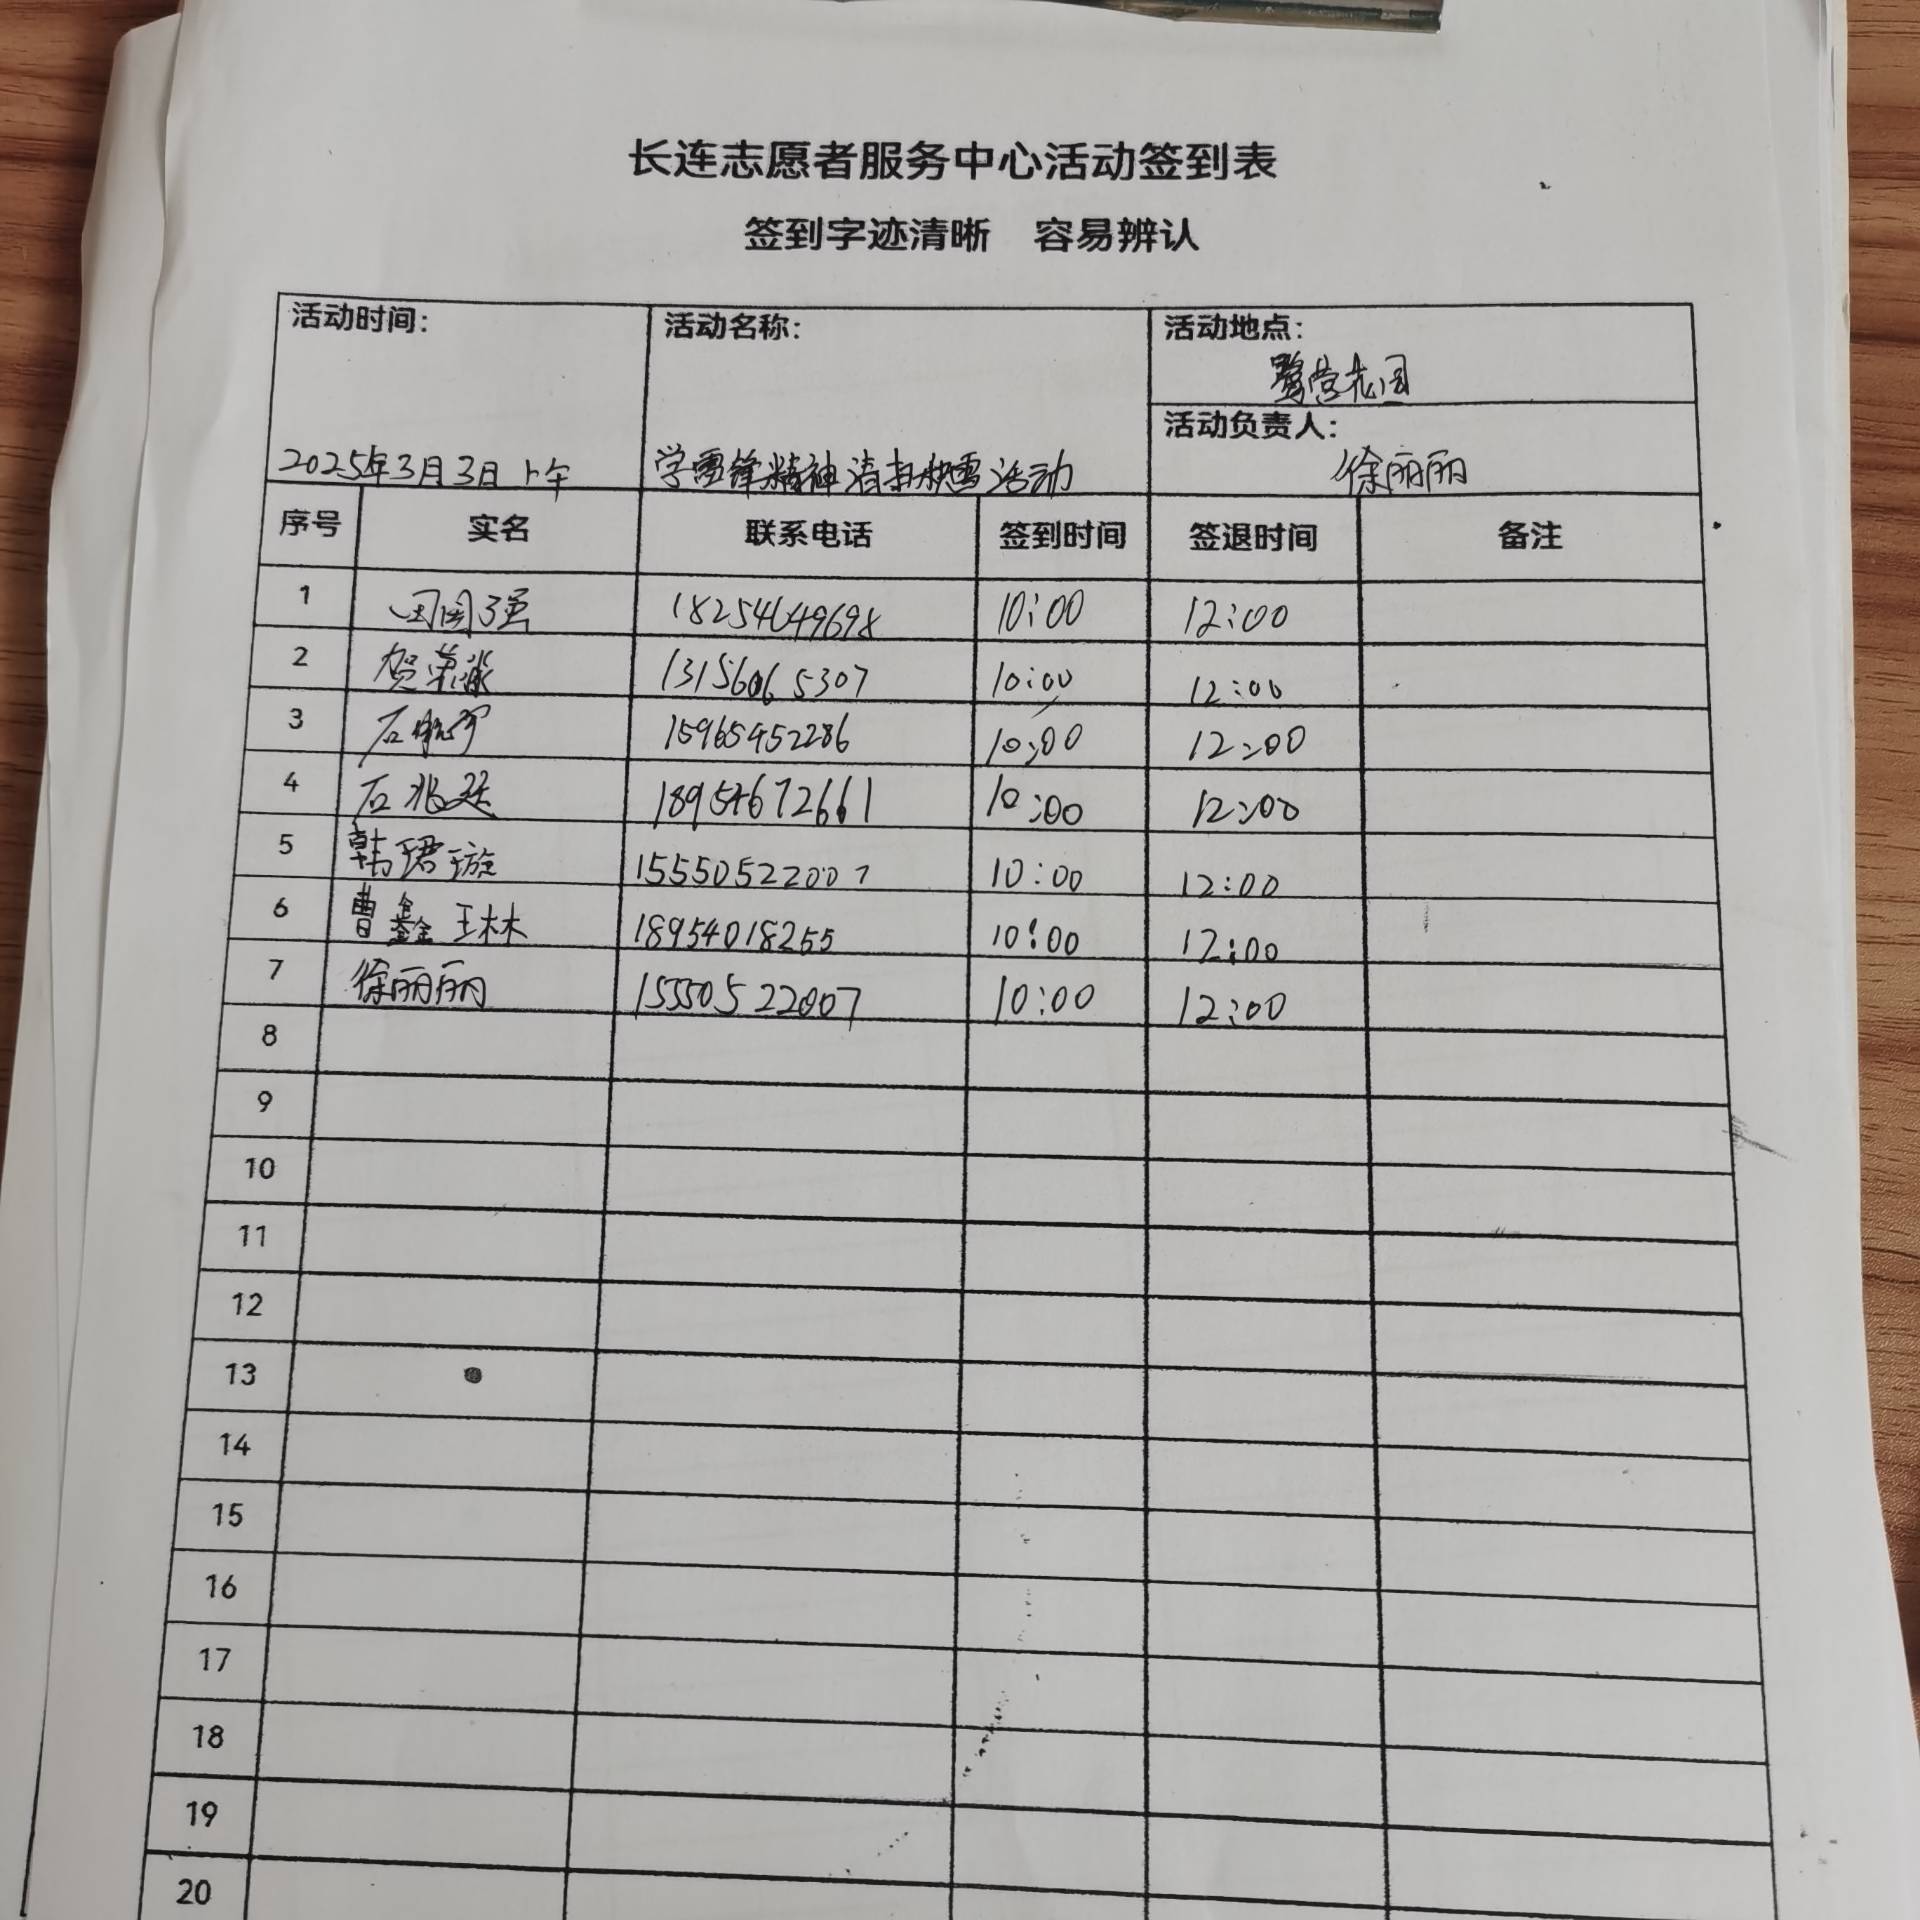 长连志愿者服务中心活动签到表
签到字迹清晰 容易辨认
活动时间: 活动名称: 活动地点:
活动负责人:
2025年3月3日上午 学雷锋精神清扫积雪活动 徐丽丽
序号 实名 联系电话 签到时间 签退时间 备注
1 田国强 10:00 12:00
2 贺荣 13156065307 10:00 12:00
3 石 15965452286 10:00 12:00
4 石兆廷 18954672661 10:00 12:00
5 韩珺璇 15550522007 10:00 12:00
6 曹鑫 王林 18954018255 10:00 12:00
7 徐丽丽 15550522007 10:00 12:00
8
9
10
11
12
13
14
15
16
17
18
19
20